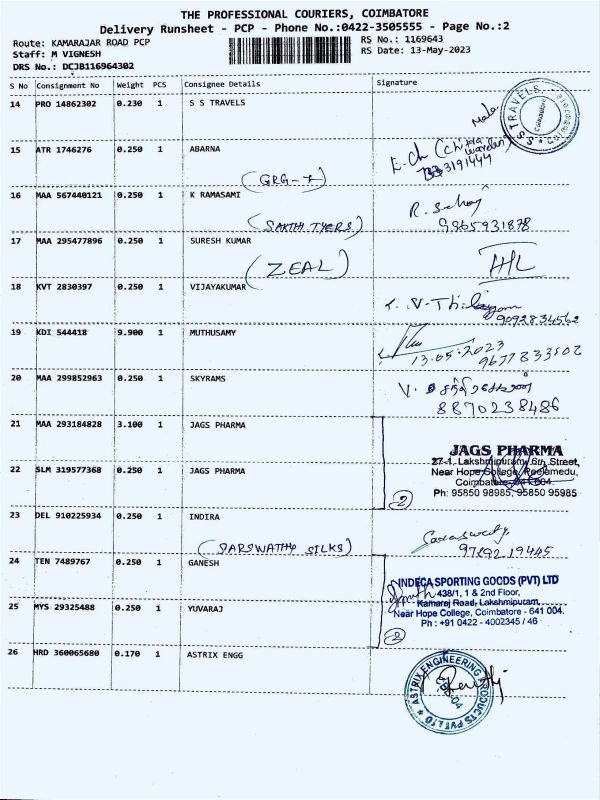 THE PROFESSIONAL COURIERS, COIMBATORE
Delivery Runsheet - PCP - Phone No.:0422-3505555 - Page No.:2
Route: KAMARAJAR ROAD PCP
RS No.: 1169643
Staff: M VIGNESH
RS Date: 13-May-2023
DRS No.: DCJB116964302
S No Consignment No Weight PCS Consignee Details Signature
14 PRO 14862302 0.230 1 S S TRAVELS
S S TRAVELS
Coimbatore
15 ATR 1746276 0.250 1 ABARNA
(GRG-7)
16 MAA 567440121 0.250 1 K RAMASAMI
(SAKTHI TYERS)
9865931878
17 MAA 295477896 0.250 1 SURESH KUMAR
(ZEAL)
18 KVT 2830397 0.250 1 VIJAYAKUMAR
9092834562
19 KDI 544418 9.900 1 MUTHUSAMY
13.05.2023
9677833502
20 MAA 299852963 0.250 1 SKYRAMS
8870238486
21 MAA 293184828 3.100 1 JAGS PHARMA
JAGS PHARMA
27-1, Lakshmipuram, 6th Street,
Near Hope College, Peelamedu,
Coimbatore-641 004.
Ph: 95850 98985, 95850 95985
22 SLM 319577368 0.250 1 JAGS PHARMA
2
23 DEL 910225934 0.250 1 INDIRA
(SARSWATHY SILKS)
9789219445
24 TEN 7489767 0.250 1 GANESH
INDECA SPORTING GOODS (PVT) LTD
438/1, 1 & 2nd Floor,
Kamaraj Road, Lakshmipuram,
Near Hope College, Coimbatore - 641 004.
Ph : +91 0422 - 4002345 / 46
25 MYS 29325488 0.250 1 YUVARAJ
2
26 HRD 360065680 0.170 1 ASTRIX ENGG
ASTRIX ENGINEERING PRODUCTS PVT LTD